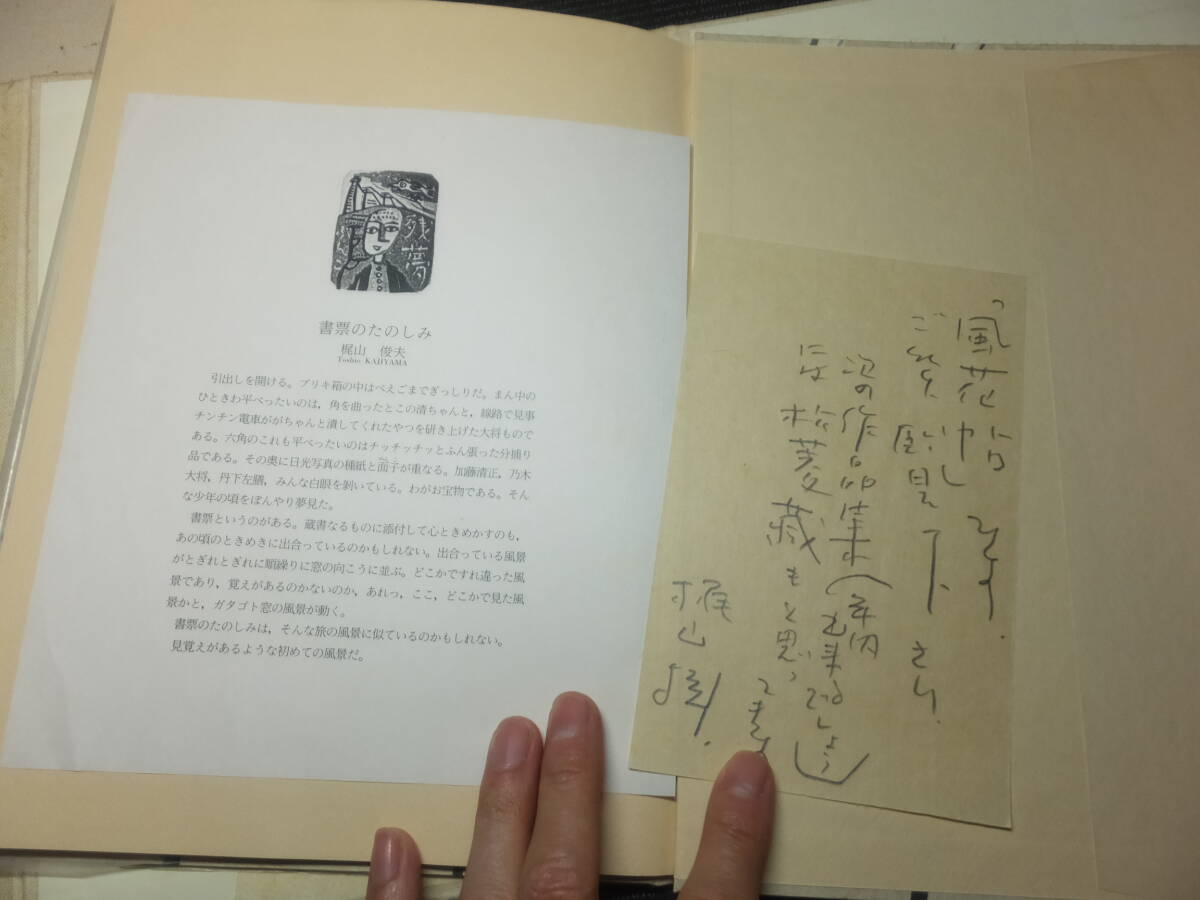 残夢
書票のたのしみ
梶山 俊夫
Toshio KAJIYAMA
引出しを開ける。ブリキ箱の中はべえごまでぎっしりだ。まん中の
ひときわ平べったいのは，角を曲ったとこの清ちゃんと，線路で見事
チンチン電車ががちゃんと潰してくれたやつを研き上げた大将もので
ある。六角のこれも平べったいのはチッチッチッとふん張った分捕り
品である。その奥に日光写真の種紙と面子が重なる。加藤清正，乃木
大将，丹下左膳，みんな白眼を剝いている。わがお宝物である。そん
な少年の頃をぼんやり夢見た。
書票というのがある。蔵書なるものに添付して心ときめかすのも，
あの頃のときめきに出合っているのかもしれない。出合っている風景
がとぎれとぎれに順繰りに窓の向こうに並ぶ。どこかですれ違った風
景であり，覚えがあるのかないのか，あれっ，ここ，どこかで見た風
景かと，ガタゴト窓の風景が動く。
書票のたのしみは，そんな旅の風景に似ているのかもしれない。
見覚えがあるような初めての風景だ。
「風花帖
下さい．
次の作品集（年内
出来るでしょう）
には 松菱蔵もと思っ
てます
梶山 俊．